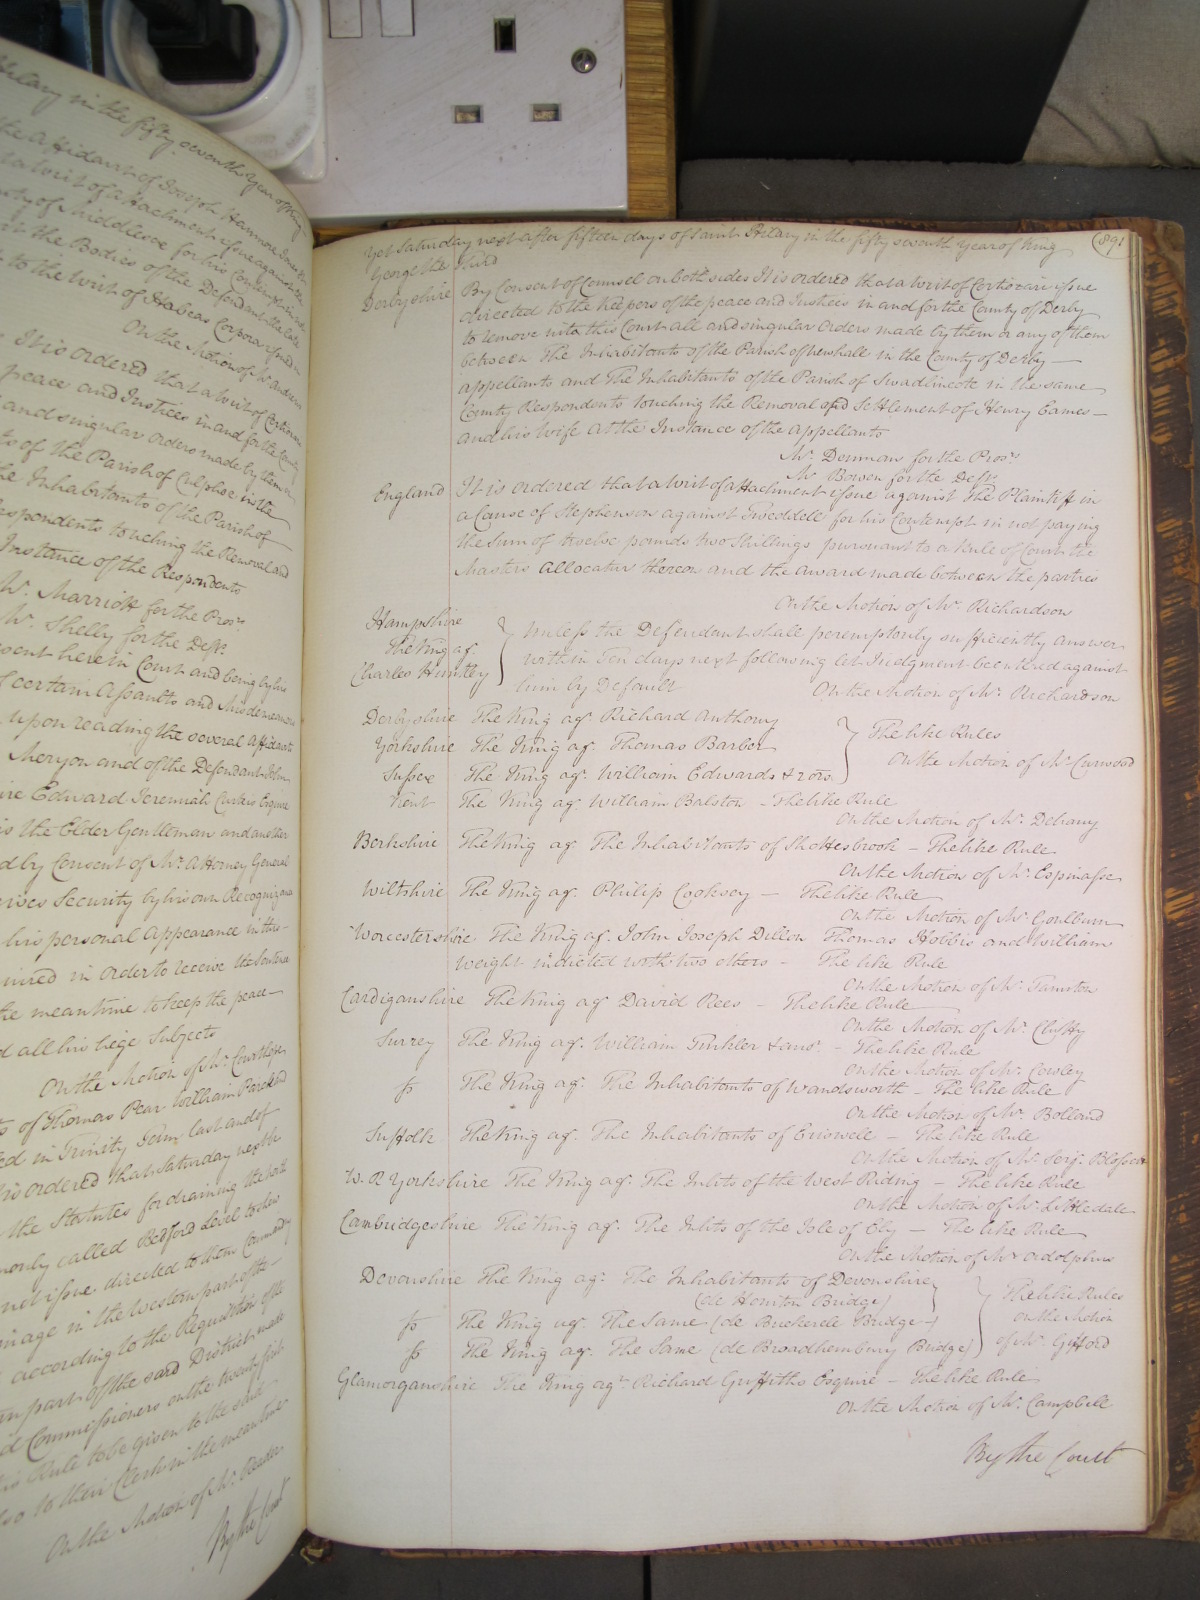 Hilary in the fifty seventh Year of King
the Affidavit of Joseph Hanmore Jones
a Writ of attachment issue against the
County of Middlesex for his Contempt in not
in the Bodies of the Defendant the late
to the Writ of Habeas Corpora issued in
On the Motion of Mr. Andrews
It is ordered that a Writ of Certiorari
peace and Justices in and for the County
and singular Orders made by them or
of the Parish of Culphoe in the
the Inhabitants of the Parish of
Respondents touching the Removal and
Instance of the Respondents
Mr. Marriott for the Prosrs.
Mr. Shelly for the Defts.
present here in Court and being by his
of certain Assaults and Misdemeanors
upon reading the several Affidavits
Meryon and of the Defendant John
Edward Jeremiah Curteis Esquire
the Elder Gentleman and another
by Consent of Mr. Attorney General
gives Security by his own Recognizance
his personal Appearance in this
required in Order to receive the Sentence
the mean time to keep the peace
and all his liege Subjects
On the Motion of Mr. Courthope
of Thomas Pear William
in Trinity Term last and of
is ordered that Saturday next
the Statutes for draining the
commonly called Bedford Level to shew
not issue directed to them Commandg
drainage in the Western part of the
according to the Requisition of the
part of the said District made
Commissioners on the twenty first
Rule to be given to the said
to their Clerk in the mean time
On the Motion of Mr. Reader
By the Court
891
Yet Saturday next after fifteen days of Saint Hilary in the fifty seventh Year of King
George the Third
Derbyshire By Consent of Counsel on both sides It is ordered that a Writ of Certiorari issue
directed to the Keepers of the peace and Justices in and for the County of Derby
to remove into this Court all and singular Orders made by them or any of them
between The Inhabitants of the Parish of Newhall in the County of Derby
appellants and The Inhabitants of the Parish of Swadlincote in the same
County Respondents touching the Removal and Settlement of Henry Eames
and his Wife at the Instance of the appellants
Mr. Denman for the Prosrs.
Mr. Bowen for the Defts.
England It is ordered that a Writ of attachment issue against The Plaintiff in
a Cause of Stephenson against Tweddell for his Contempt in not paying
the Sum of twelve pounds two Shillings pursuant to a Rule of Court the
Masters allocatur thereon and the award made between the parties
On the Motion of Mr. Richardson
Hampshire
The King agt.
Charles Huntley
Unless the Defendant shall peremptorily sufficiently answer
within Ten days next following let Judgment be entered against
him by Default On the Motion of Mr. Richardson
Derbyshire The King agt. Richard Anthony
Yorkshire The King agt. Thomas Barber
Sussex The King agt. William Edwards & 2 ors.
The like Rules
On the Motion of Mr. Curwood
Kent The King agt. William Balston - The like Rule
On the Motion of Mr. Delvany
Berkshire The King agt. The Inhabitants of Shottesbrook - The like Rule
On the Motion of Mr. Espinasse
Wiltshire The King agt. Philip Cooksey - The like Rule
On the Motion of Mr. Goulburn
Worcestershire The King agt. John Joseph Dillon Thomas Hobbis and William
Weight indicted with two others - The like Rule
On the Motion of Mr. Taunton
Cardiganshire The King agt. David Rees - The like Rule
On the Motion of Mr. Chitty
Surrey The King agt. William Tinkler & anor. - The like Rule
On the Motion of Mr. Cowley
so The King agt. The Inhabitants of Wandsworth - The like Rule
On the Motion of Mr. Bolland
Suffolk The King agt. The Inhabitants of Eriswell - The like Rule
On the Motion of Mr. Serjt. Blossett
W. R Yorkshire The King agt. The Inhts of the West Riding - The like Rule
On the Motion of Mr. Littledale
Cambridgeshire The King agt. The Inhts of the Isle of Ely - The like Rule
On the Motion of Mr. Adolphus
Devonshire The King agt. The Inhabitants of Devonshire
(de Honiton Bridge)
so The King agt. The Same (de Buckerell Bridge)
so The King agt. The Same (de Broadhembury Bridge)
The like Rules
On the Motion
of Mr. Gifford
Glamorganshire The King agt. Richard Griffiths Esquire - The like Rule
On the Motion of Mr. Campbell
By the Court